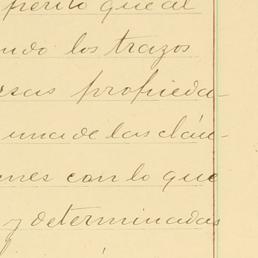 perito que al
ndo los trazos
rsas propieda-
una de las cláu-
enes con lo que
y determinadas